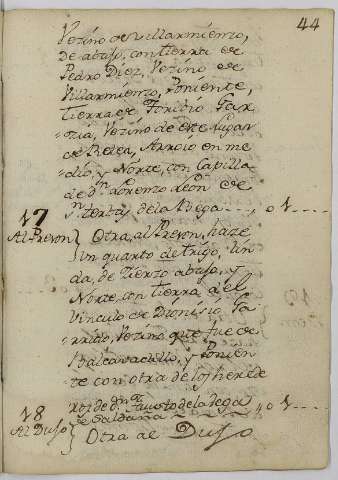 44
Vezino de Villarmienzo,
De abajo, con tierra de
Pedro Diez, Vezino de
Villarmienzo, Poniente,
tierra de Toribio Gar-
=zia, Vezino de este Lugar
de Relea, Arroio en me
dio, y Norte, con Capilla
de Dn. Lorenzo Leon de
Sn. de la Vega...., 0 1....
17
Al Prevon } Otra, al Prevon, haze
Un quarto de trigo, lin
da, de Zierzo abajo, y
Norte, con tierra del
Vinculo de Dionisio Ga
rrido, Vezino que fue de
Balcavadillo, y Ponien
te con otra de los herede
ros de Dn. Fausto de la Vega
de Saldaña ,, 0 1....
18
Al Dujo } Otra al Dujo